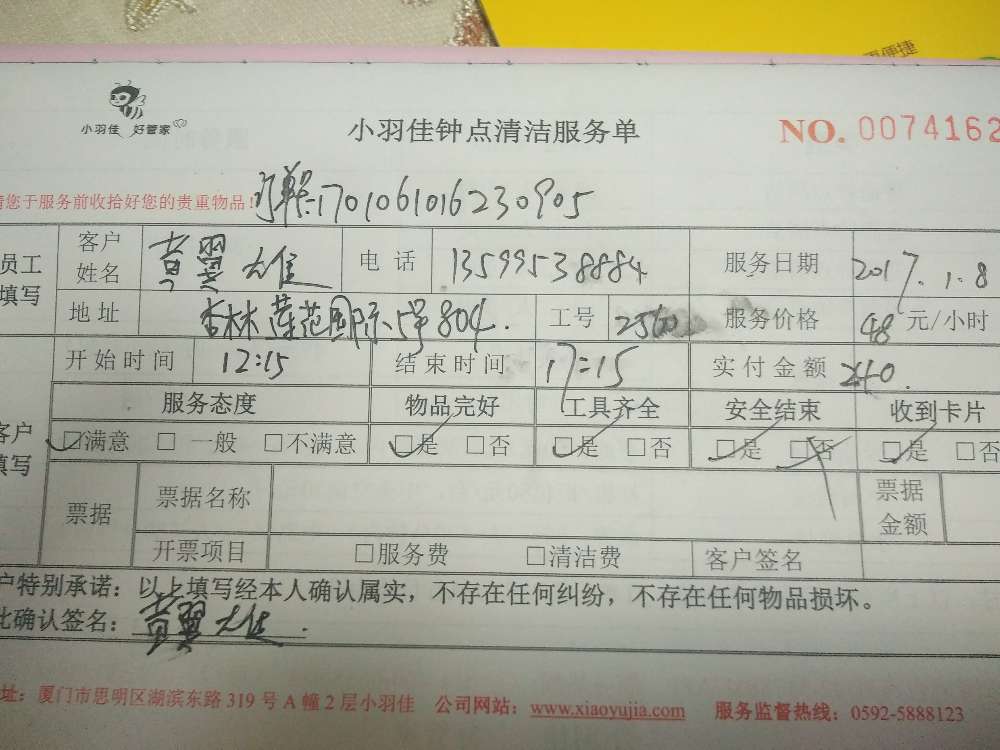 更便捷
小羽佳 好管家
小羽佳钟点清洁服务单
NO. 0074162
请您于服务前收拾好您的贵重物品!
订单:170106101623090​5
员工填写
客户姓名 黄翼雄 电话 13599538884 服务日期 2017.1.8
地址 杏林莲花国际5号804. 工号 2560 服务价格 48 元/小时
开始时间 12:15 结束时间 17:15 实付金额 240.
服务态度 物品完好 工具齐全 安全结束 收到卡片
客户填写
□满意 □一般 □不满意 □是 □否 □是 □否 □是 □否 □是 □否
票据 票据名称 票据金额
开票项目 □服务费 □清洁费 客户签名
户特别承诺：以上填写经本人确认属实，不存在任何纠纷，不存在任何物品损坏。
此确认签名： 黄翼雄.
址：厦门市思明区湖滨东路 319 号 A 幢 2 层小羽佳 公司网站：www.xiaoyujia.com 服务监督热线：0592-5888123